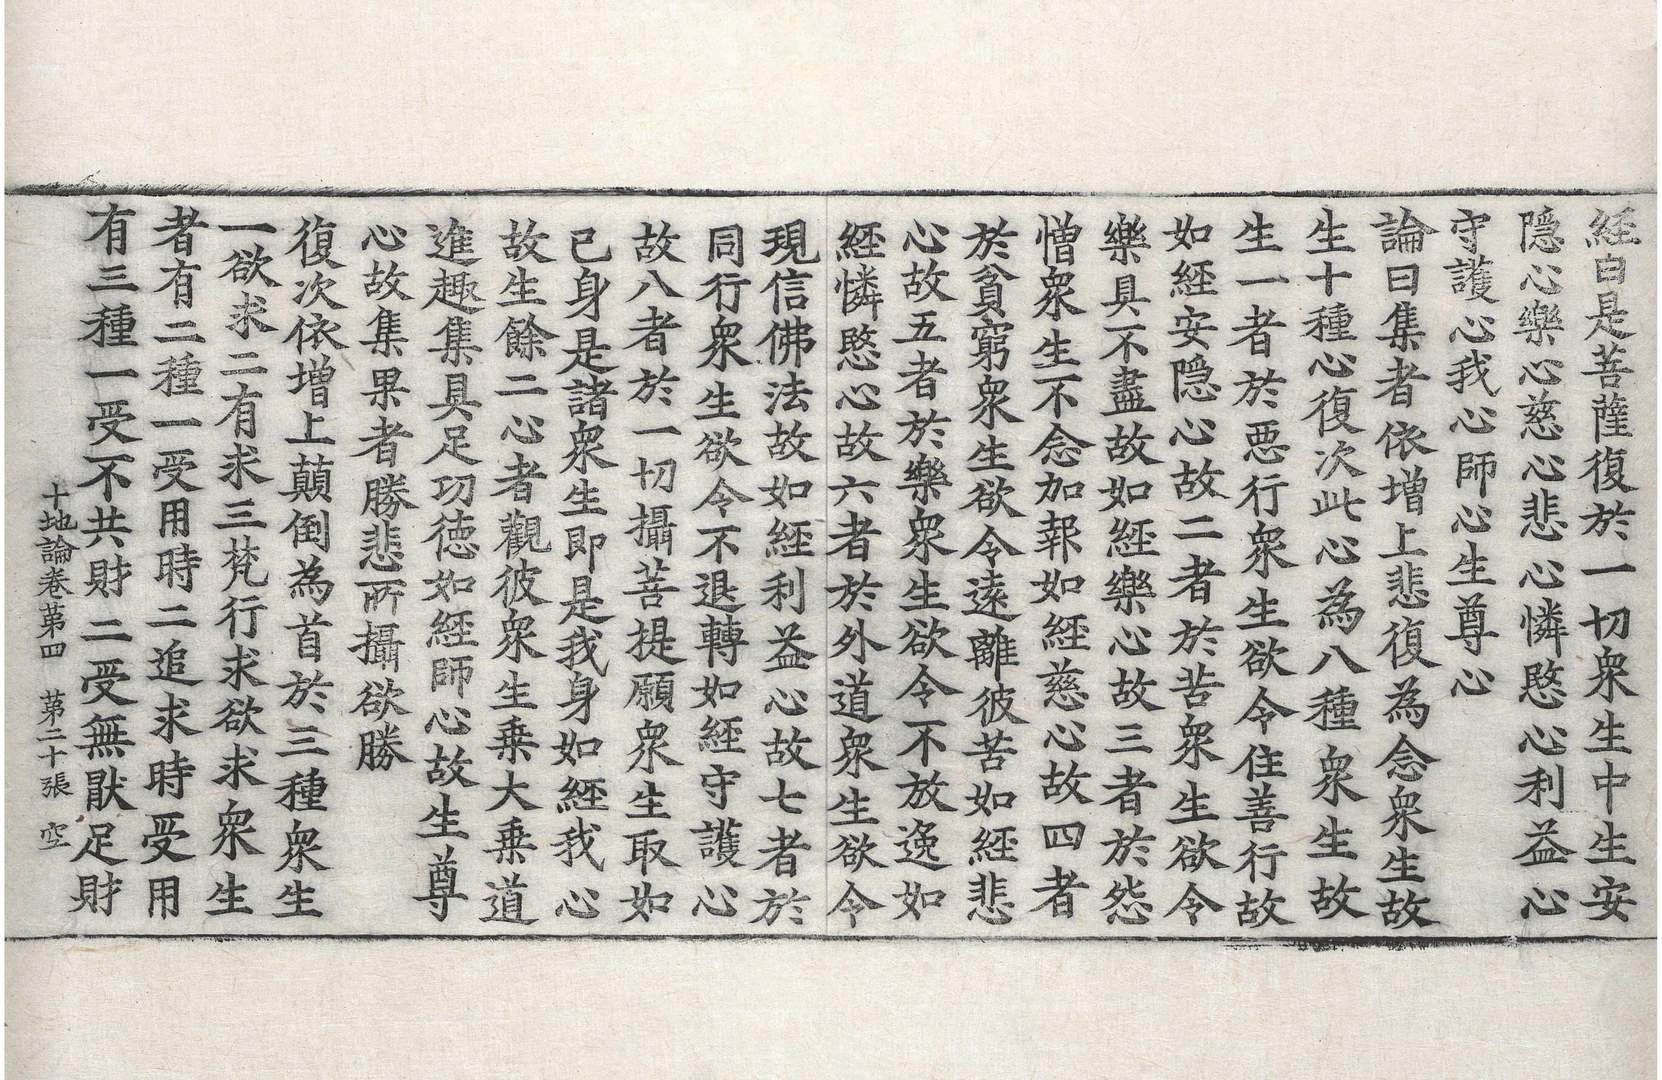 經白是菩薩復於一切衆生中生安
隱心樂心慈心悲心憐愍心利益心
守護心我心師心生尊心
論曰集者依增上悲復為念衆生故
生十種心復次此心為八種衆生故
生一者於惡行衆生欲令住善行故
如經安隱心故二者於苦衆生欲令
樂具不盡故如經樂心故三者於怨
憎衆生不念加報如經慈心故四者
於貧窮衆生欲令遠離彼苦如經悲
心故五者於樂衆生欲令不放逸如
經憐愍心故六者於外道衆生欲令
現信佛法故如經利益心故七者於
同行衆生欲令不退轉如經守護心
故八者於一切攝菩提願衆生取如
己身是諸衆生即是我身如經我心
故生餘二心者觀彼衆生乗大乗道
進趣集具足功德如經師心故生尊
心故集果者勝悲所攝欲勝
復次依增上顛倒為首於三種衆生
一欲求二有求三梵行求欲求衆生
者有二種一受用時二追求時受用
有三種一受不共財二受無猒足財
十地論卷第四 第二十張 空